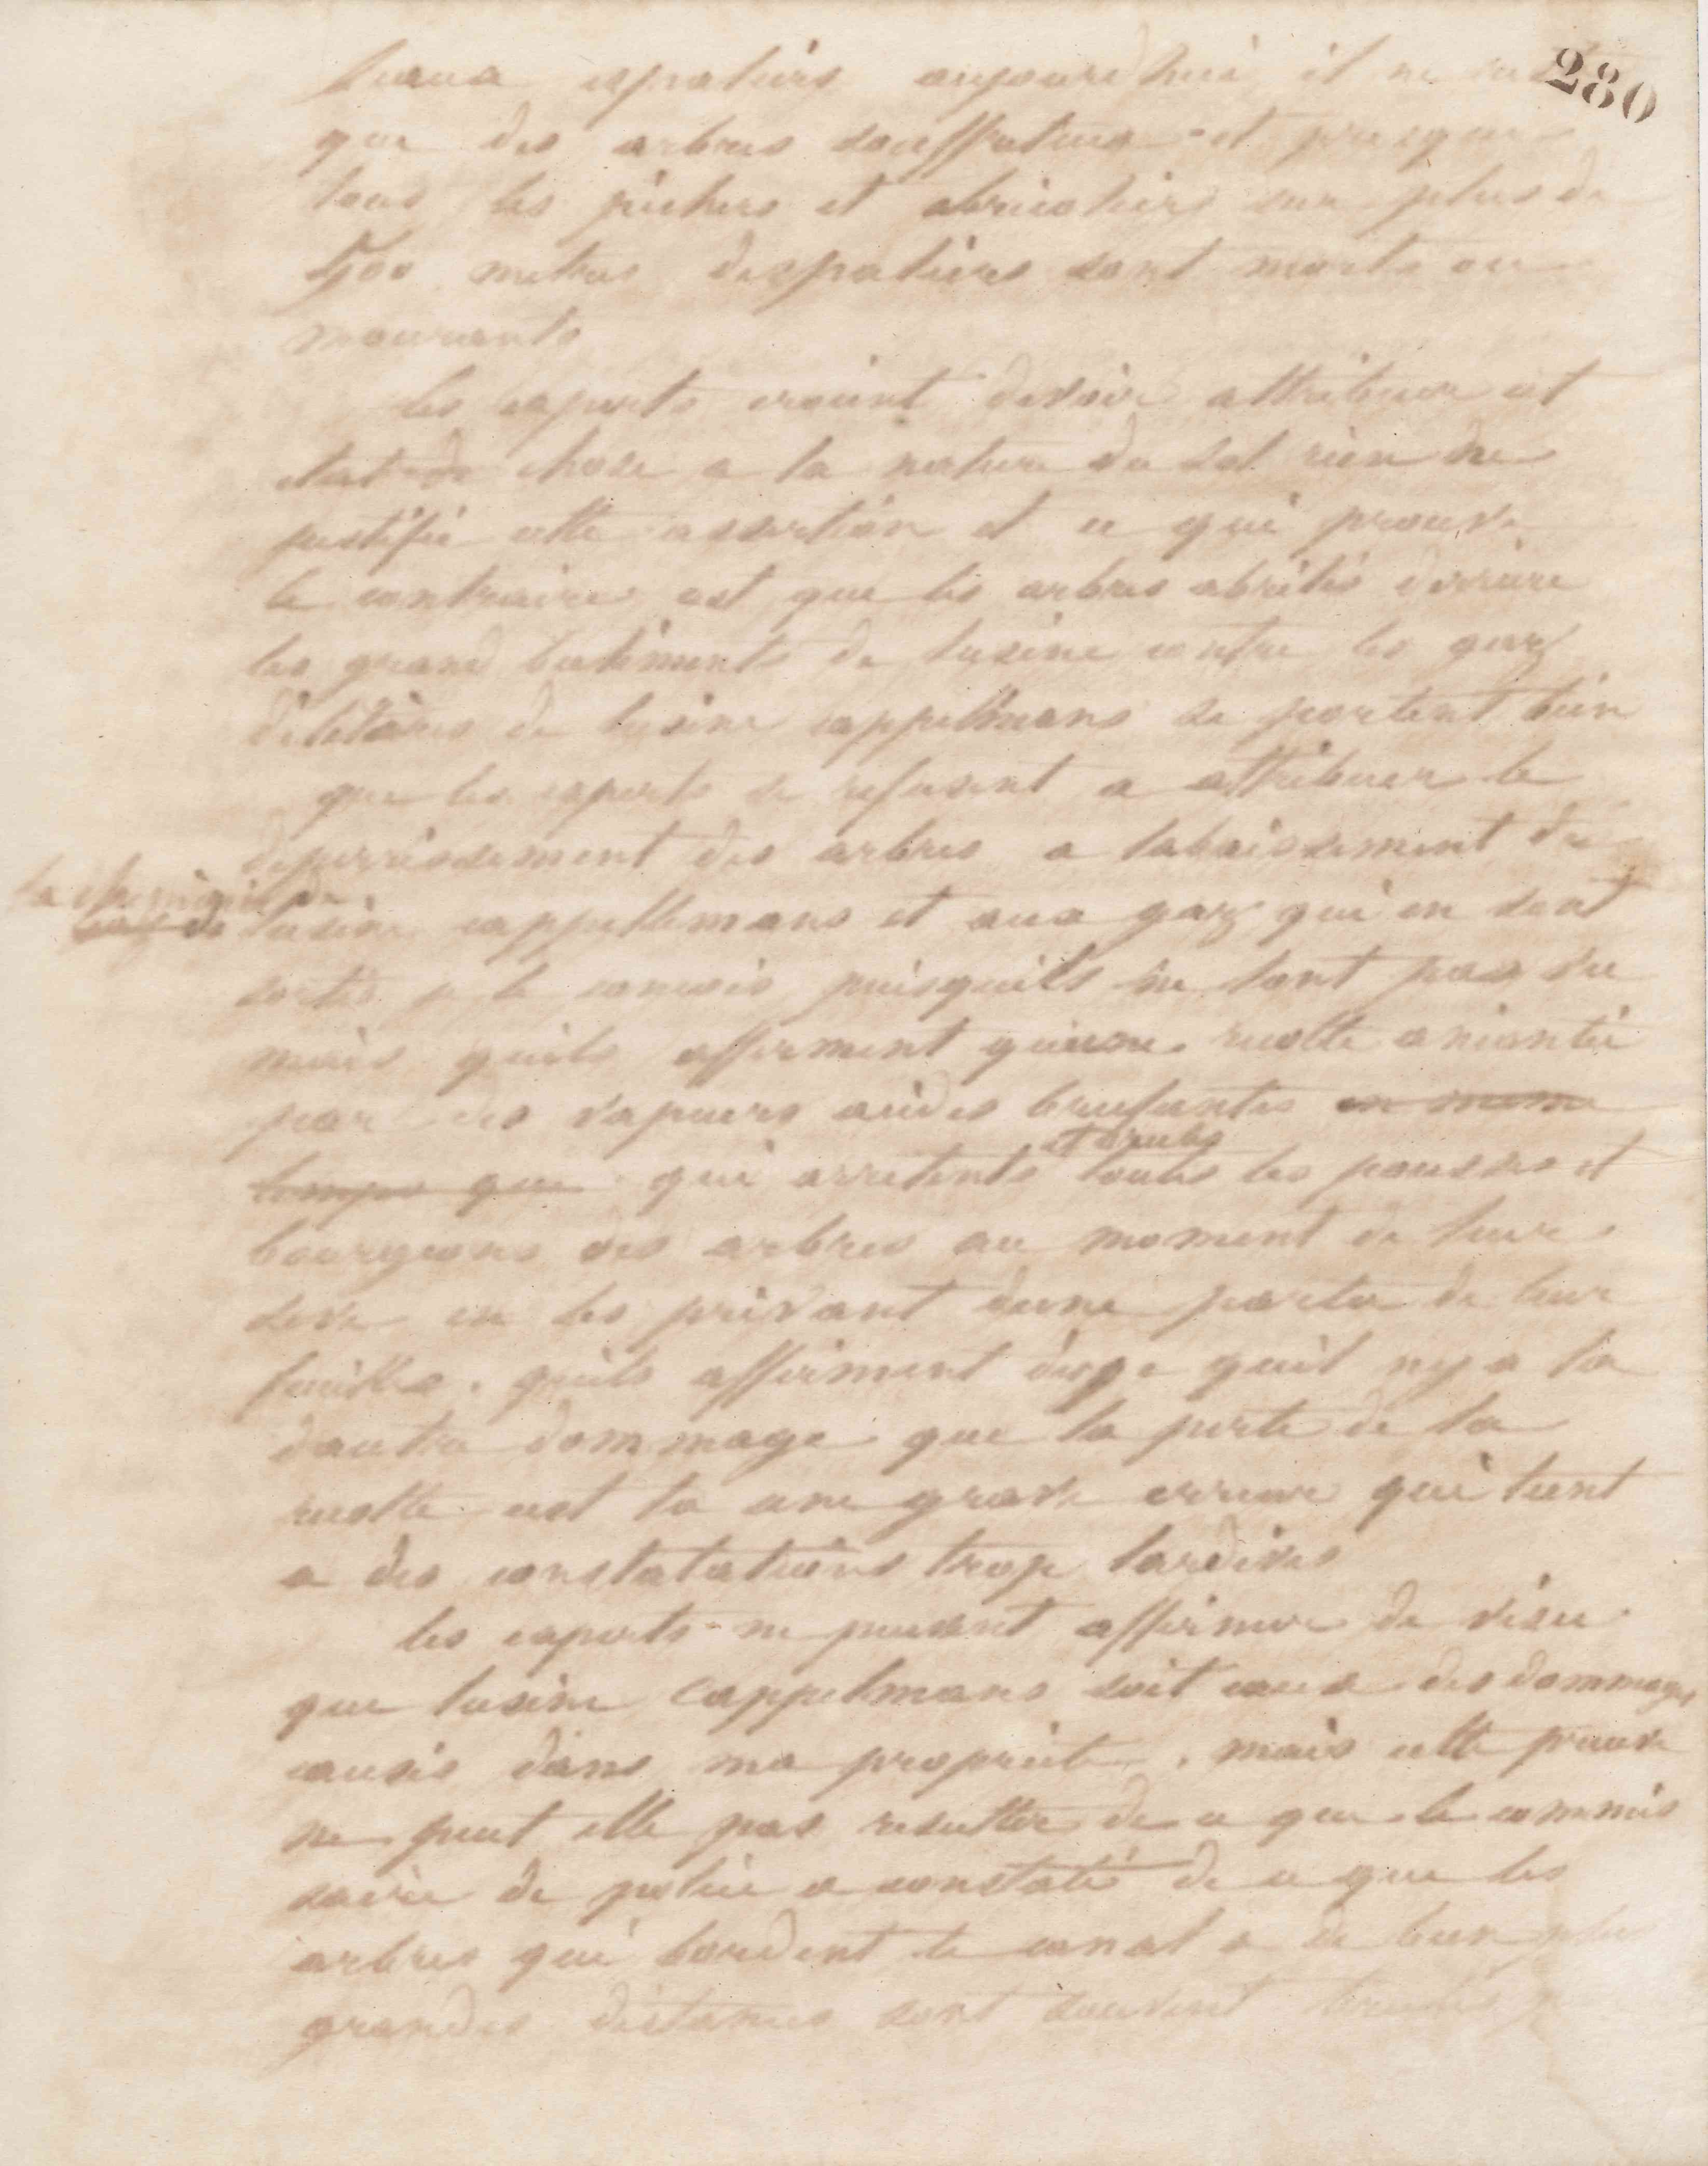 280
beaux espaliers aujourdhui il ne
que des arbres souffreteux et presque
tous les pechers et abricotiers sur plus de
500 metres despaliers sont morts ou
mourants
les experts croient devoir attribuer cet
etat de chose a la nature du sol rien ne
justifie cette assertion et ce qui prouve
le contraire est que les arbres abrités derriere
les grand batiments de lusine contre les gaz
déletères de lusine cappellmans se portent bien
que les experts se refusent a attribuer le
deperrissement des arbres a labaissement de
la cheminée de
lusine cappellemans et aux gaz qui en sont
sortis je le conçois puisquils ne lont pas vu
mais quils affirment quune recolte anéantie
par des vapeurs acides brulantes en meme
temps que qui arretent et brule toutes les pousses et
bourgeons des arbres au moment de leur
seve en les privant dune partie de leur
feuilles, quils affirment disje quil ny a la
dautre dommage que la perte de la
recolte cest la une grave erreur qui tient
a des constatations trop tardives
les experts ne peuvent affirmer de visu
que lusine Cappelmans soit cause des dommages
causés dans ma propriete, mais cette preuve
ne peut elle pas resulter de ce que le commis
saire de police a constaté de ce que les
arbres qui bordent le canal a de bien plus
grandes distances sont souvent brulés